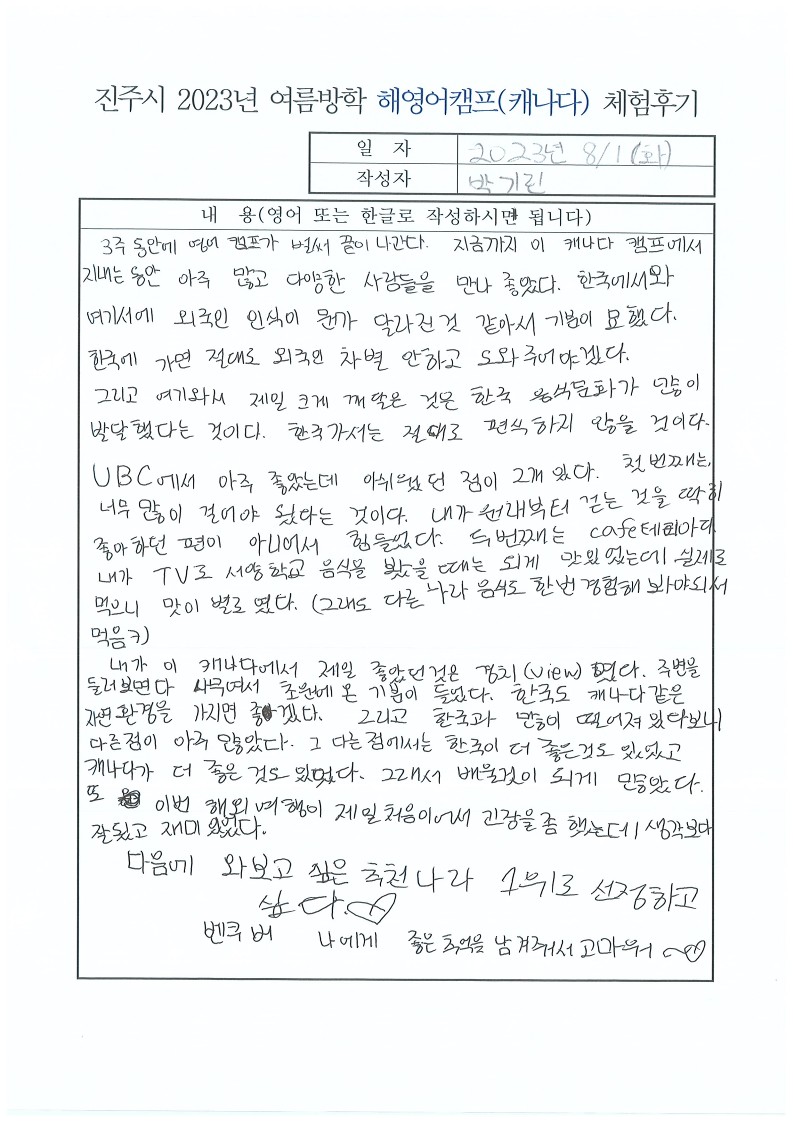 진주시 2023년 여름방학 해영어캠프(캐나다) 체험후기
일 자 2023년 8/1 (화)
작성자 박기린
내 용(영어 또는 한글로 작성하시면 됩니다)
3주 동안에 영어 캠프가 벌써 끝이 나간다. 지금까지 이 캐나다 캠프에서
지내는 동안 아주 많고 다양한 사람들을 만나 좋았다. 한국에서와
여기서에 외국인 인식이 뭔가 달라진것 같아서 기분이 묘했다.
한국에 가면 절대로 외국인 차별 안하고 도와주어야겠다.
그리고 여기와서 제일 크게 깨달은 것은 한국 음식문화가 많이
발달했다는 것이다. 한국가서는 절대로 편식하지 않을 것이다.
UBC에서 아주 좋았는데 아쉬웠던 점이 2개 있다. 첫번째는,
너무 많이 걸어야 됬다는 것이다. 내가 원래부터 걷는 것을 딱히
좋아하던 편이 아니어서 힘들었다. 두번째는 cafe테리아다.
내가 TV로 서양학교 음식을 봤을 때는 되게 맛있었는데 실제로
먹으니 맛이 별로 였다. (그래도 다른 나라 음식도 한번 경험해 봐야되서
먹음ㅋ)
내가 이 캐나다에서 제일 좋았던것은 경치(view) 였다. 주변을
둘러보면 다 나무여서 초원에 온 기분이 들었다. 한국도 캐나다 같은
자연환경을 가지면 좋겠다. 그리고 한국과 많이 떨어져 있다보니
다른점이 아주 많았다. 그 다른점에서는 한국이 더 좋은것도 있었고
캐나다가 더 좋은 것도 있었다. 그래서 배울것이 되게 많았다.
또 이번 해외여행이 제일처음이어서 긴장을 좀 했는데 생각보다
잘됬고 재미있었다.
다음에 와보고 싶은 추천나라 1위로 선정하고
싶다.♡
벤쿠버 나에게 좋은 추억을 남겨줘서 고마워 ~♡